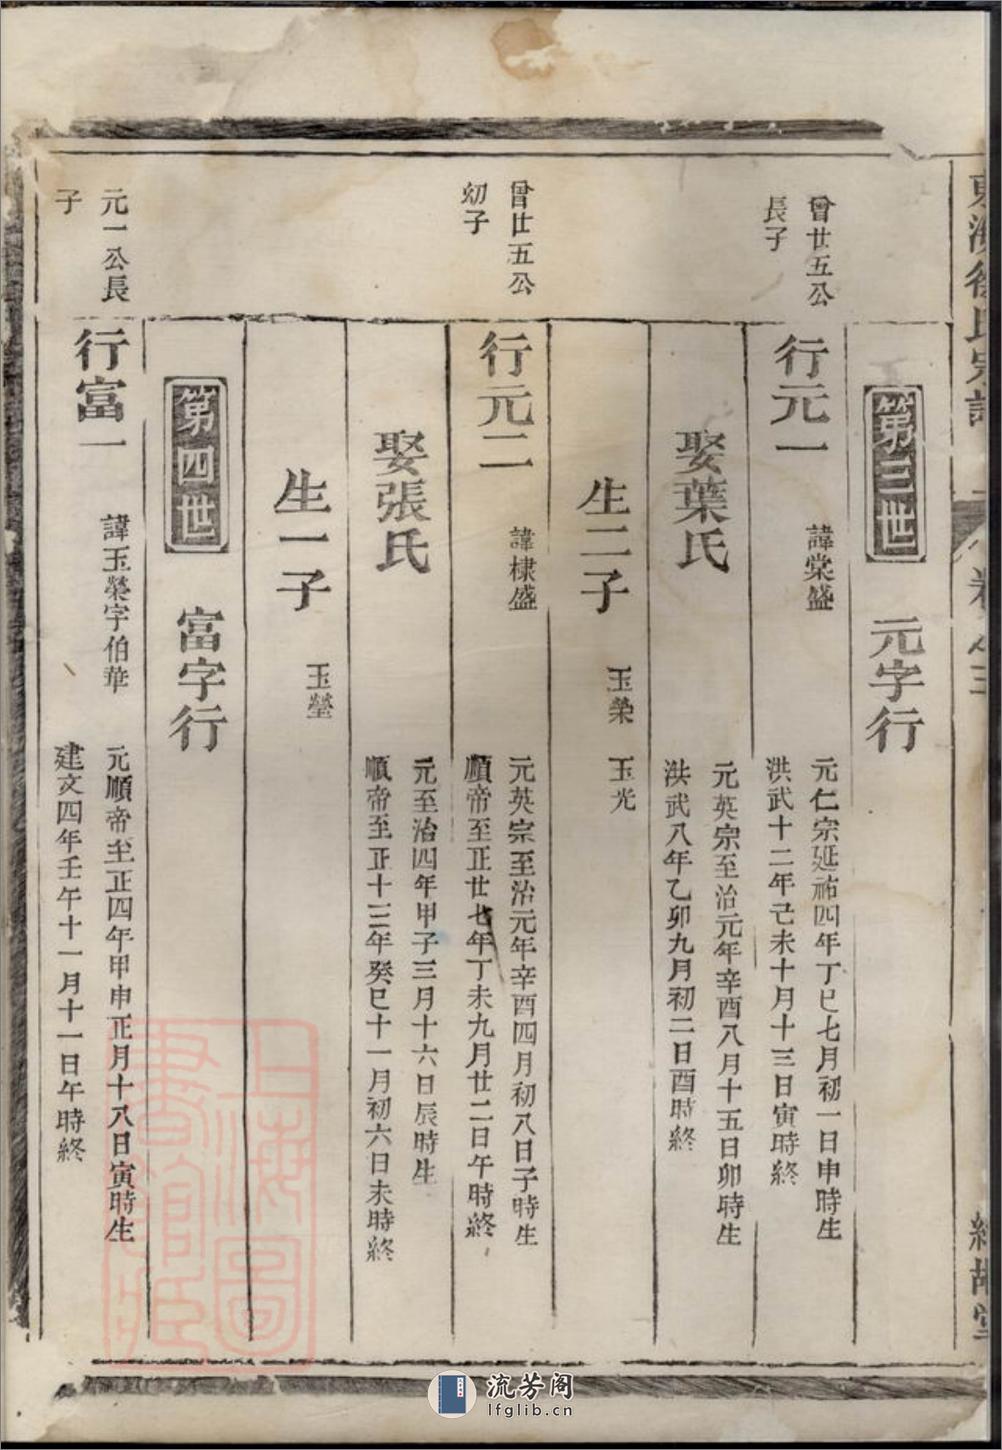 東海徐氏宗譜
卷之三
第三世
元字行
曾廿五公
長子
行元一
諱棠盛
元仁宗延祐四年丁巳七月初一日申時生
洪武十二年己未十月十三日寅時終
娶葉氏
元英宗至治元年辛酉八月十五日卯時生
洪武八年乙卯九月初二日酉時終
生二子
玉榮
玉光
曾廿五公
幼子
行元二
諱棣盛
元英宗至治元年辛酉四月初八日子時生
順帝至正廿七年丁未九月廿二日午時終
娶張氏
元至治四年甲子三月十六日辰時生
順帝至正十三年癸巳十一月初六日未時終
生一子
玉瑩
第四世
富字行
元一公長
子
行富一
諱玉榮字伯華
元順帝至正四年甲申正月十八日寅時生
建文四年壬午十一月十一日午時終
上海圖
書館藏
流芳阁
lfglib.cn